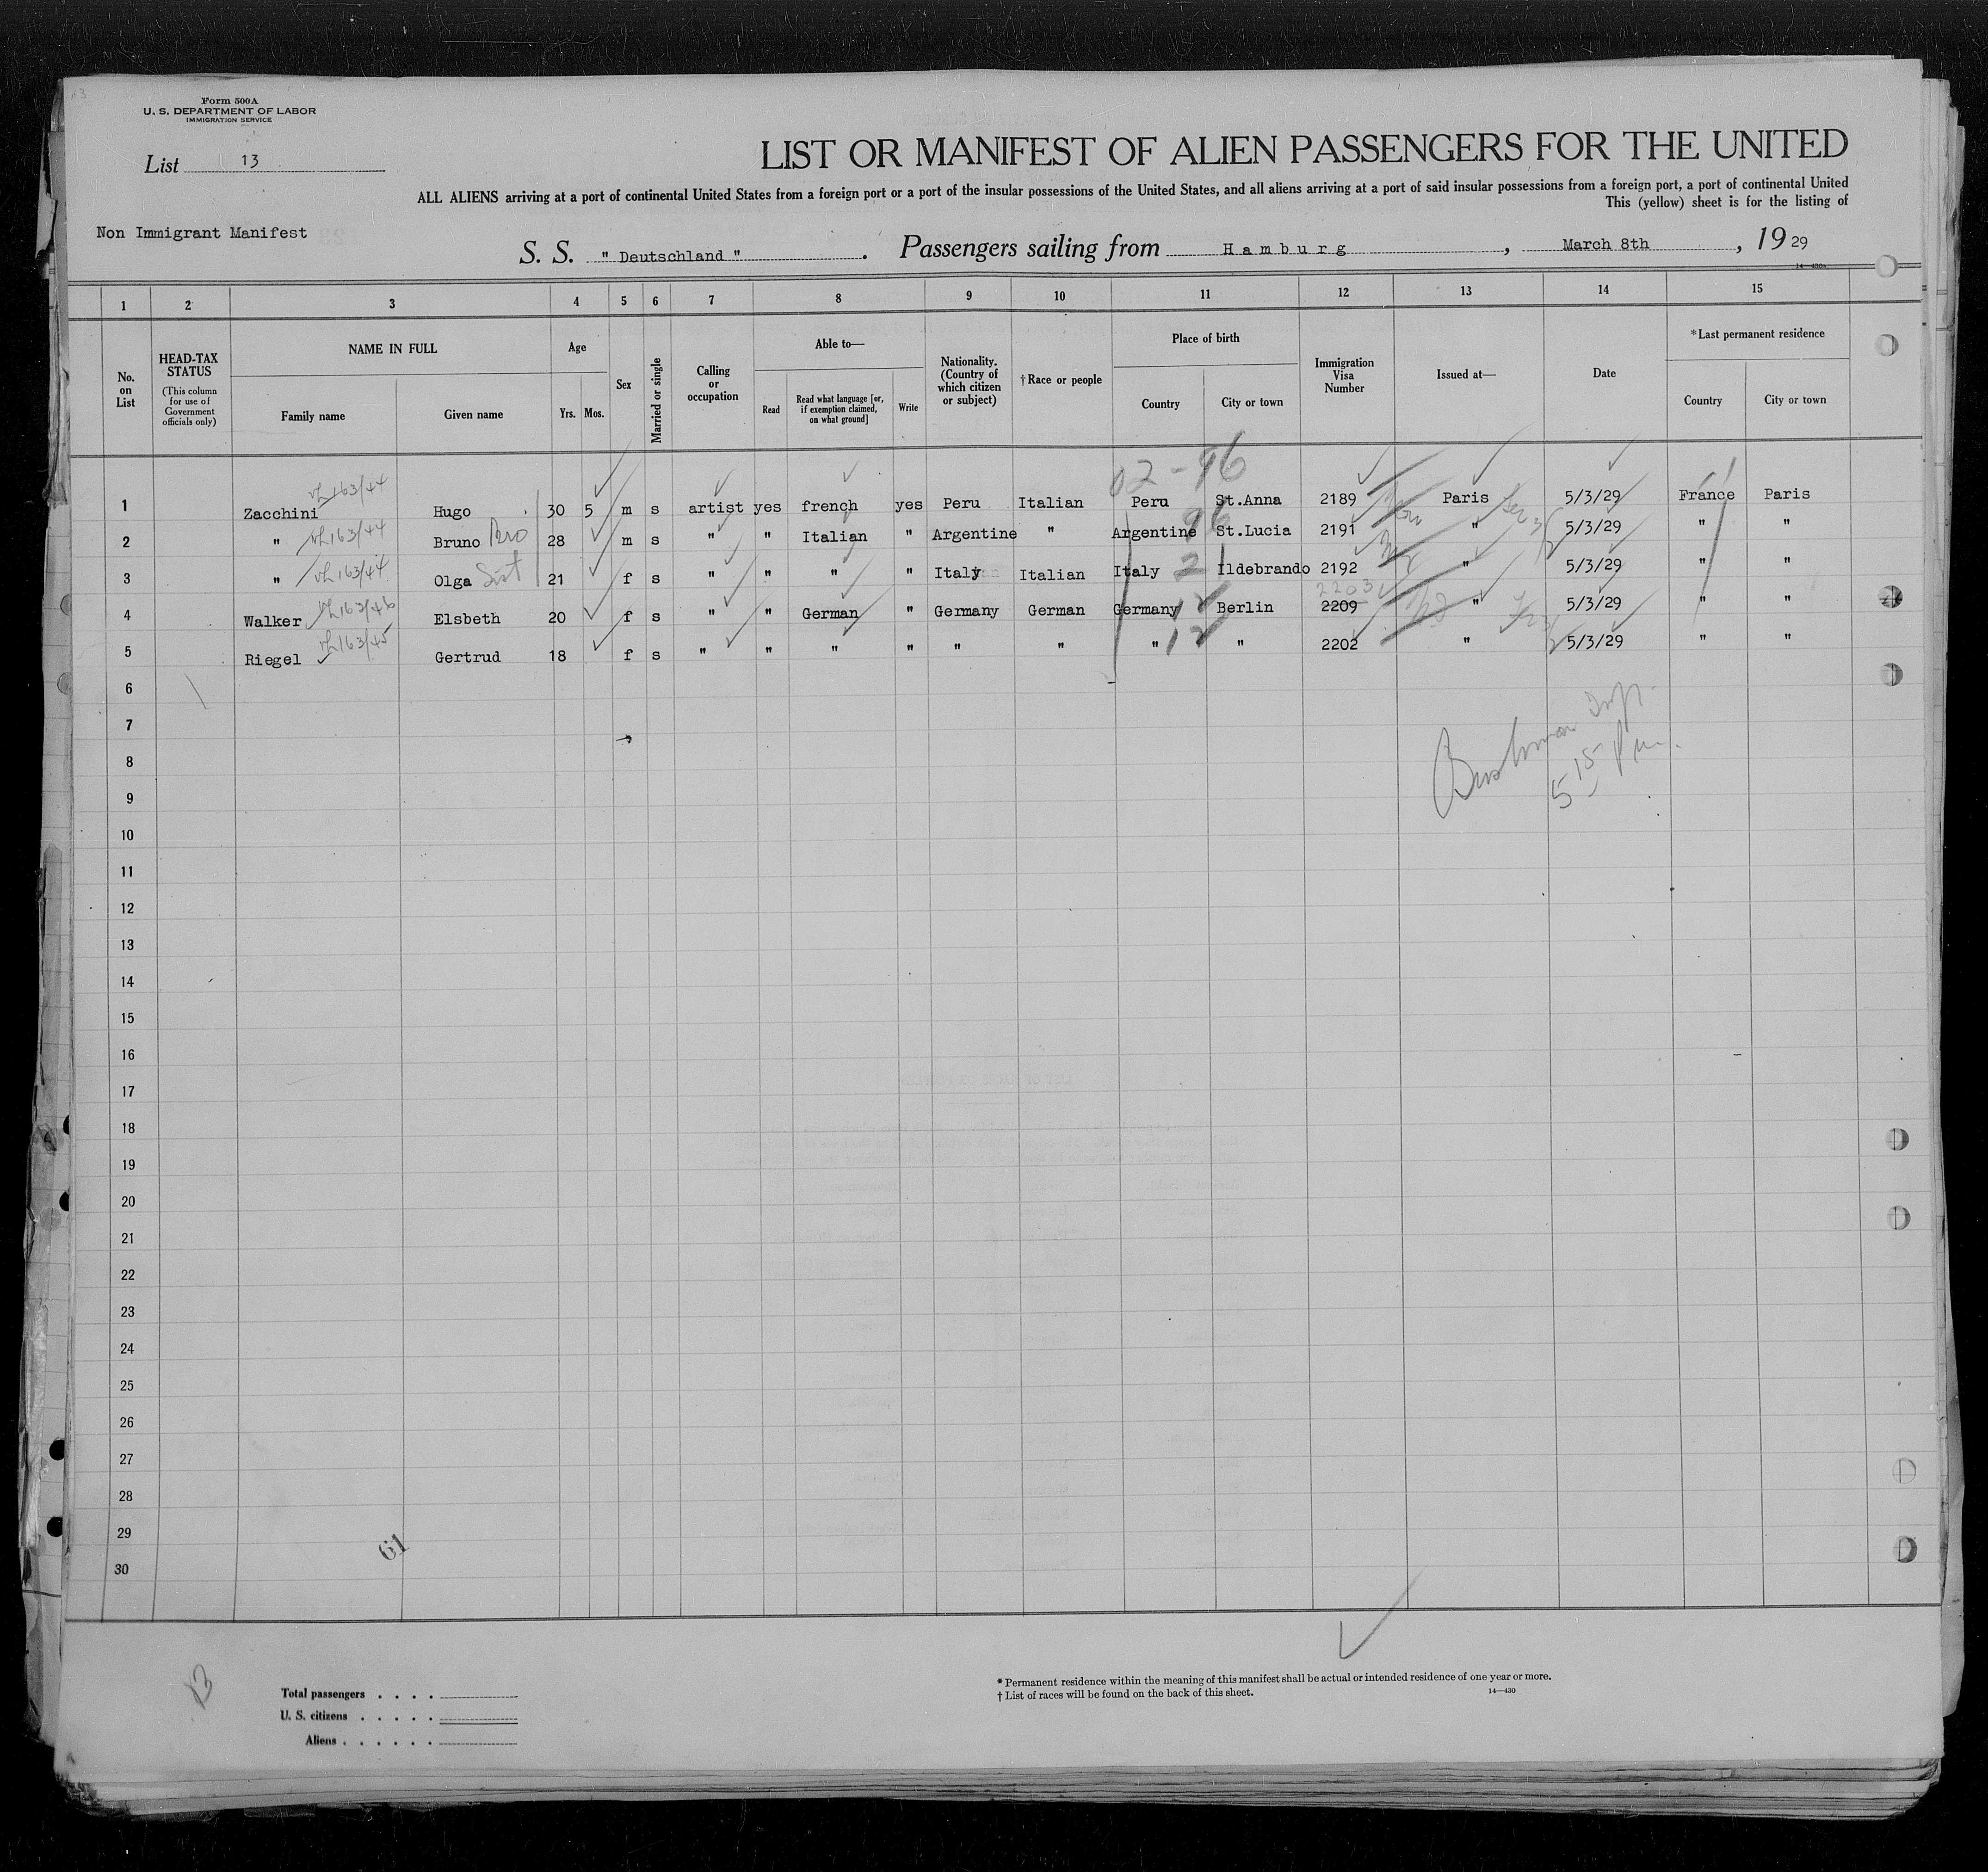 Form 500A
U. S. DEPARTMENT OF LABOR
IMMIGRATION SERVICE
List 13
LIST OR MANIFEST OF ALIEN PASSENGERS FOR THE UNITED
ALL ALIENS arriving at a port of continental United States from a foreign port or a port of the insular possessions of the United States, and all aliens arriving at a port of said insular possessions from a foreign port, a port of continental United
This (yellow) sheet is for the listing of
Non Immigrant Manifest
S. S. " Deutschland " . Passengers sailing from Hamburg , March 8th , 19 29
1 2 3 4 5 6 7 8 9 10 11 12 13 14 15
No. on List
HEAD-TAX STATUS (This column for use of Government officials only)
NAME IN FULL
Family name Given name
Age
Yrs. Mos.
Sex
Married or single
Calling or occupation
Able to—
Read
Read what language [or, if exemption claimed, on what ground]
Write
Nationality. (Country of which citizen or subject)
†Race or people
Place of birth
Country City or town
Immigration Visa Number
Issued at—
Date
*Last permanent residence
Country City or town
02-96
163/44
1 Zacchini Hugo 30 5 m s artist yes french yes Peru Italian Peru St.Anna 2189 Paris 5/3/29 France Paris
163/44 96
2 " Bruno Bro 28 m s " " Italian " Argentine " Argentine St.Lucia 2191 " 5/3/29 " "
163/44
3 " Olga Sist 21 f s " " " " Italy Italian Italy 2 Ildebrando 2192 " 5/3/29 " "
163/46 2203
4 Walker Elsbeth 20 f s " " German " Germany German Germany 12 Berlin 2209 " 5/3/29 " "
163/45
5 Riegel Gertrud 18 f s " " " " " " " 12 " 2202 " 5/3/29 " "
6
7
8
9
10
11
12
13
14
15
16
17
18
19
20
21
22
23
24
25
26
27
28
29
30
5 15 Pm.
61
13
Total passengers . . . .
U. S. citizens . . . . .
Aliens . . . . . .
* Permanent residence within the meaning of this manifest shall be actual or intended residence of one year or more.
† List of races will be found on the back of this sheet.
14—430